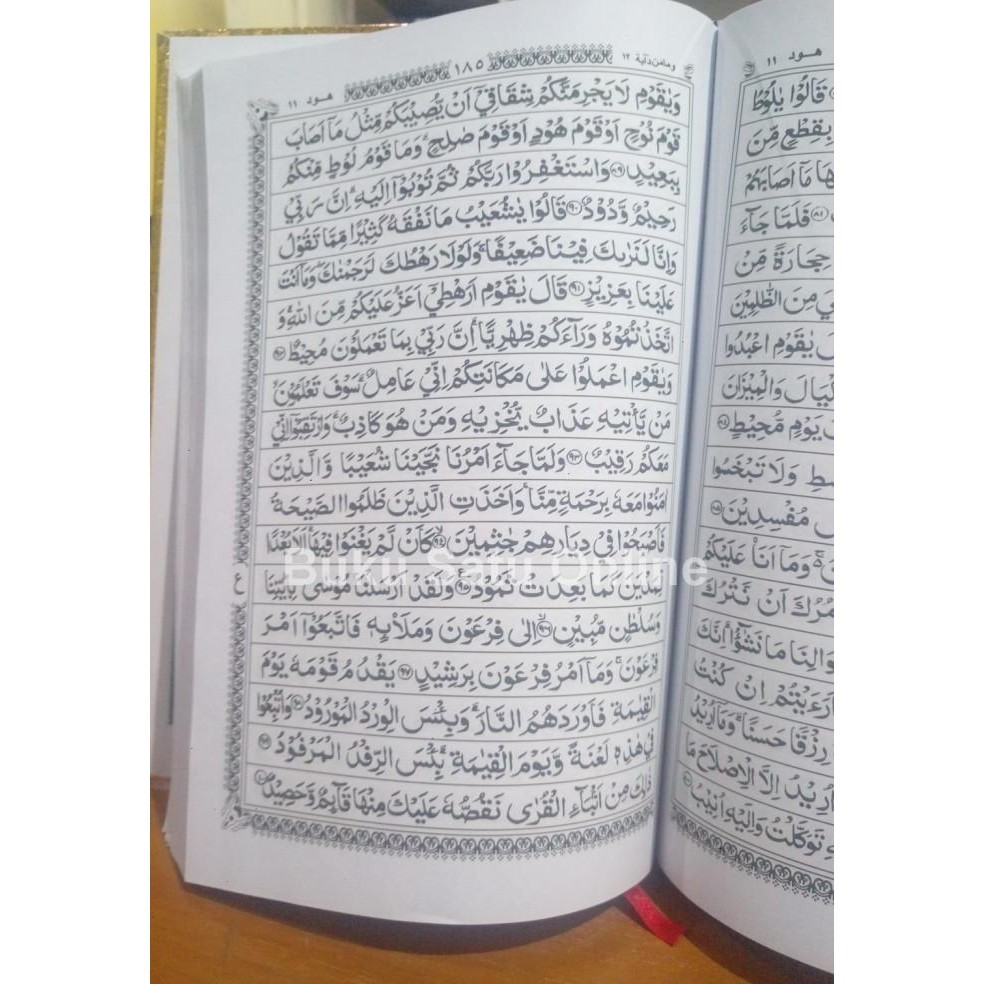 هود ١١
قَالُوْا يٰلُوْطُ
بِقِطْعٍ مِّنَ
مَآ اَصَابَهُمْ
فَلَمَّا جَآءَ
حِجَارَةً مِّنْ
مِنَ الظّٰلِمِيْنَ
يٰقَوْمِ اعْبُدُوا
وَالْمِيْزَانَ
يَوْمٍ مُّحِيْطٍ ٨٤
وَلَا تَبْخَسُوا
مُفْسِدِيْنَ ٨٥
وَمَآ اَنَا۠ عَلَيْكُمْ
اَنْ نَّتْرُكَ
مَا نَشٰۤؤُا اِنَّكَ
اَرَءَيْتُمْ اِنْ كُنْتُ
رِزْقًا حَسَنًا وَمَآ اُرِيْدُ
اُرِيْدُ اِلَّا الْاِصْلَاحَ مَا
تَوَكَّلْتُ وَاِلَيْهِ اُنِيْبُ
ومامن دآبة ١٢ ١٨٥ هود ١١
وَيٰقَوْمِ لَا يَجْرِمَنَّكُمْ شِقَاقِيْٓ اَنْ يُّصِيْبَكُمْ مِّثْلُ مَآ اَصَابَ
قَوْمَ نُوْحٍ اَوْ قَوْمَ هُوْدٍ اَوْ قَوْمَ صٰلِحٍ وَمَا قَوْمُ لُوْطٍ مِّنْكُمْ
بِبَعِيْدٍ ٨٩ وَاسْتَغْفِرُوْا رَبَّكُمْ ثُمَّ تُوْبُوْٓا اِلَيْهِ اِنَّ رَبِّيْ
رَحِيْمٌ وَّدُوْدٌ ٩٠ قَالُوْا يٰشُعَيْبُ مَا نَفْقَهُ كَثِيْرًا مِّمَّا تَقُوْلُ
وَاِنَّا لَنَرٰىكَ فِيْنَا ضَعِيْفًا وَلَوْلَا رَهْطُكَ لَرَجَمْنٰكَ وَمَآ اَنْتَ
عَلَيْنَا بِعَزِيْزٍ ٩١ قَالَ يٰقَوْمِ اَرَهْطِيْٓ اَعَزُّ عَلَيْكُمْ مِّنَ اللّٰهِ وَ
اتَّخَذْتُمُوْهُ وَرَآءَكُمْ ظِهْرِيًّا اِنَّ رَبِّيْ بِمَا تَعْمَلُوْنَ مُحِيْطٌ ٩٢
وَيٰقَوْمِ اعْمَلُوْا عَلٰى مَكَانَتِكُمْ اِنِّيْ عَامِلٌ سَوْفَ تَعْلَمُوْنَ
مَنْ يَّأْتِيْهِ عَذَابٌ يُّخْزِيْهِ وَمَنْ هُوَ كَاذِبٌ وَارْتَقِبُوْٓا اِنِّيْ
مَعَكُمْ رَقِيْبٌ ٩٣ وَلَمَّا جَآءَ اَمْرُنَا نَجَّيْنَا شُعَيْبًا وَّالَّذِيْنَ
اٰمَنُوْا مَعَهٗ بِرَحْمَةٍ مِّنَّا وَاَخَذَتِ الَّذِيْنَ ظَلَمُوا الصَّيْحَةُ
فَاَصْبَحُوْا فِيْ دِيَارِهِمْ جٰثِمِيْنَ ٩٤ كَاَنْ لَّمْ يَغْنَوْا فِيْهَا اَلَا بُعْدًا
Buku Satu Online
لِّمَدْيَنَ كَمَا بَعِدَتْ ثَمُوْدُ ٩٥ وَلَقَدْ اَرْسَلْنَا مُوْسٰى بِاٰيٰتِنَا
ع
وَسُلْطٰنٍ مُّبِيْنٍ ٩٦ اِلٰى فِرْعَوْنَ وَمَلَا۟ئِهٖ فَاتَّبَعُوْٓا اَمْرَ
فِرْعَوْنَ وَمَآ اَمْرُ فِرْعَوْنَ بِرَشِيْدٍ ٩٧ يَقْدُمُ قَوْمَهٗ يَوْمَ
الْقِيٰمَةِ فَاَوْرَدَهُمُ النَّارَ وَبِئْسَ الْوِرْدُ الْمَوْرُوْدُ ٩٨ وَاُتْبِعُوْا
فِيْ هٰذِهٖ لَعْنَةً وَّيَوْمَ الْقِيٰمَةِ بِئْسَ الرِّفْدُ الْمَرْفُوْدُ ٩٩
ذٰلِكَ مِنْ اَنْۢبَآءِ الْقُرٰى نَقُصُّهٗ عَلَيْكَ مِنْهَا قَآئِمٌ وَّحَصِيْدٌ ١٠٠